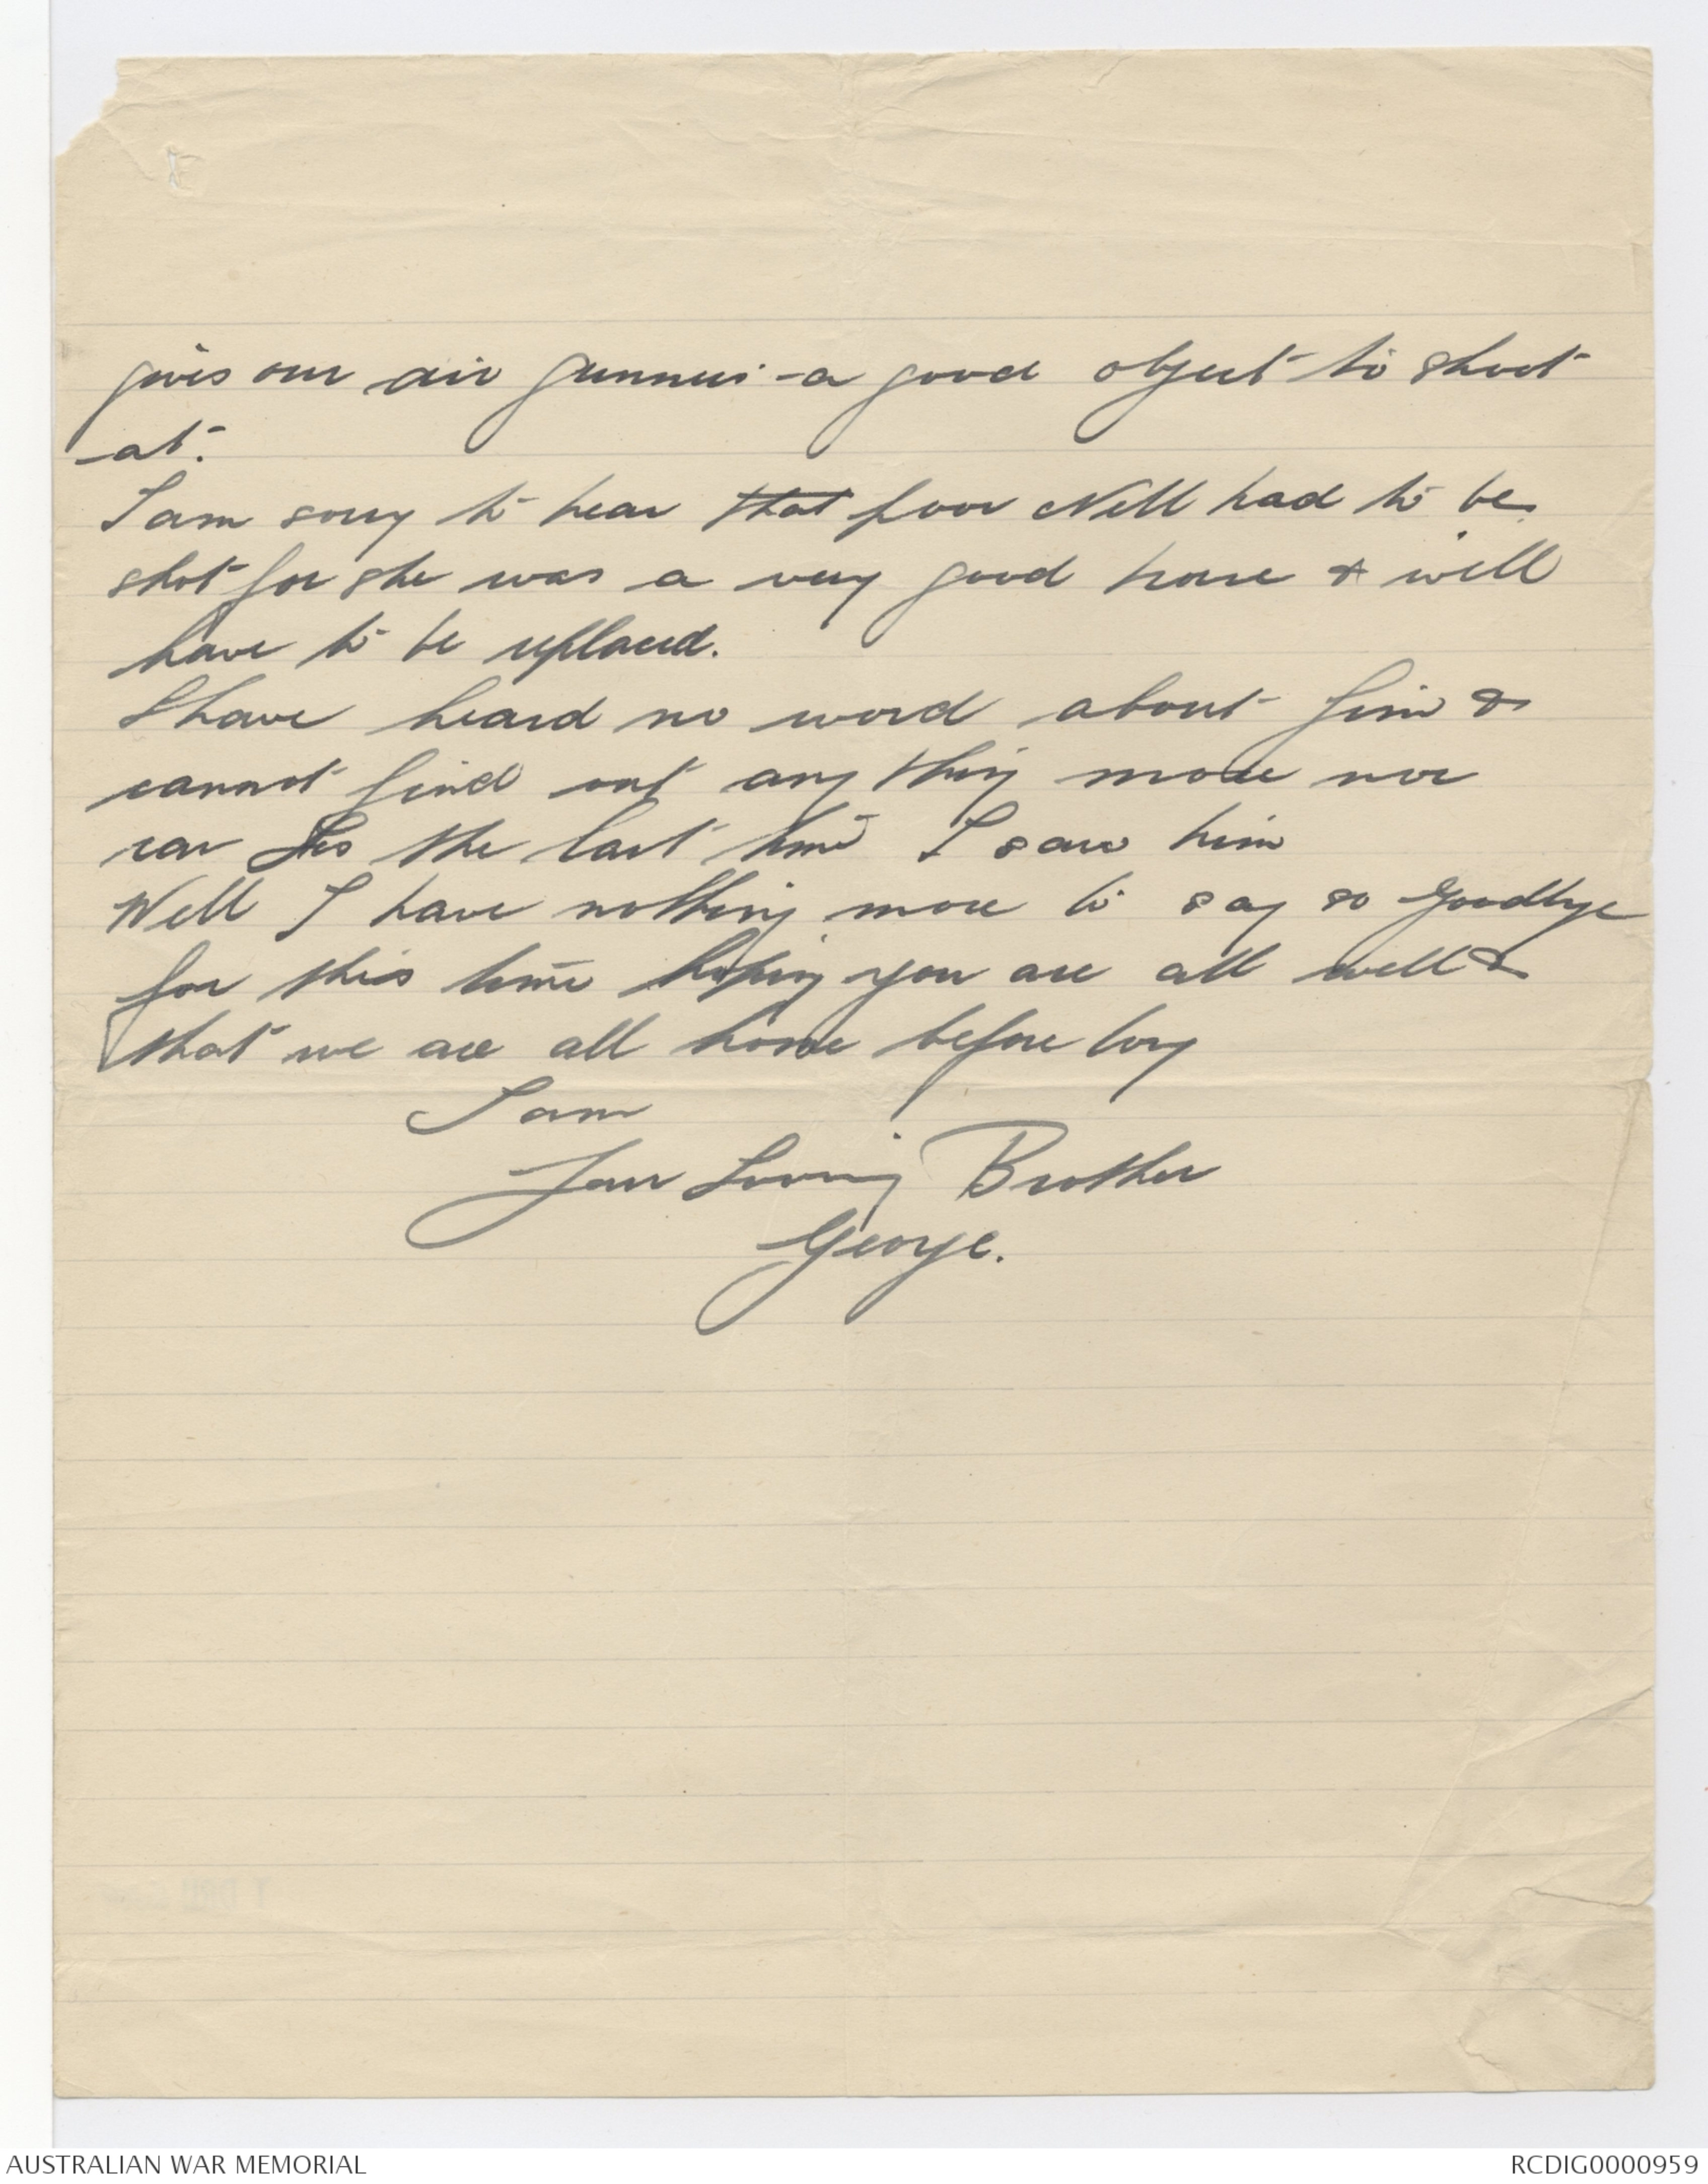 gives our air gunners a good object to shoot
at.
I am sorry to hear that poor Nell had to be
shot for she was a very good horse & will
have to be replaced.
I have heard no word about Jim &
cannot find out any thing more nor
can Les the last time I saw him
Well I have nothing more to say so Goodbye
for this time hoping you are all well &
that we are all home before long
I am
Your Loving Brother
George.
AUSTRALIAN WAR MEMORIAL
RCDIG0000959